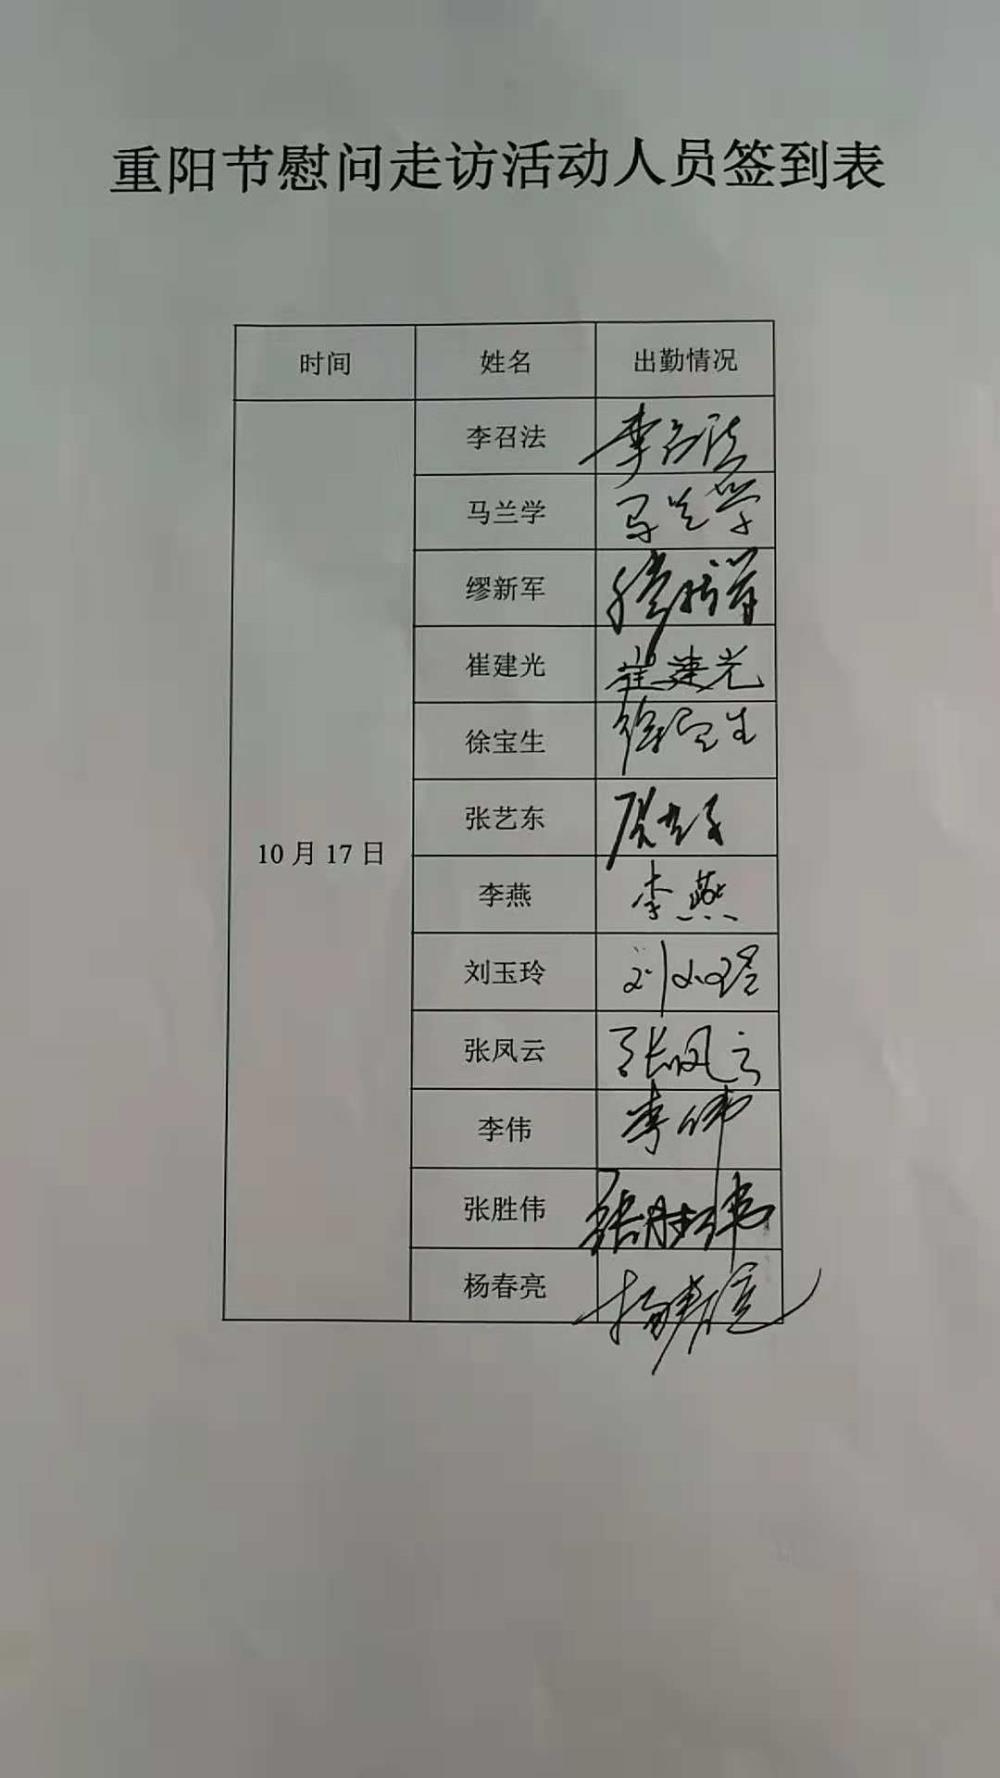 重阳节慰问走访活动人员签到表
时间 姓名 出勤情况
李召法 李召法
马兰学 马兰学
缪新军 缪新军
崔建光 崔建光
徐宝生 徐宝生
张艺东 张艺东
10月17日
李燕 李燕
刘玉玲 刘玉玲
张凤云 张凤云
李伟 李伟
张胜伟 张胜伟
杨春亮 杨春亮